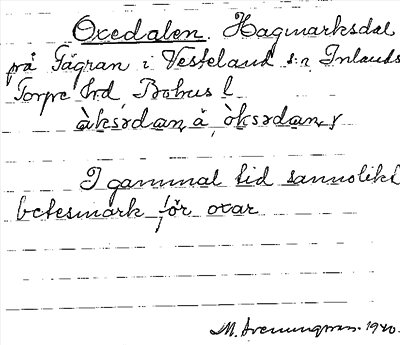 Oxedalen. Hagmarksdal
på Tågran i Vesteland s:n Inlands
Torpe hrd, Bohus l
àksədaṇ å òksədaṇ
I gammal tid sannolikt
betesmark för oxar
1940.